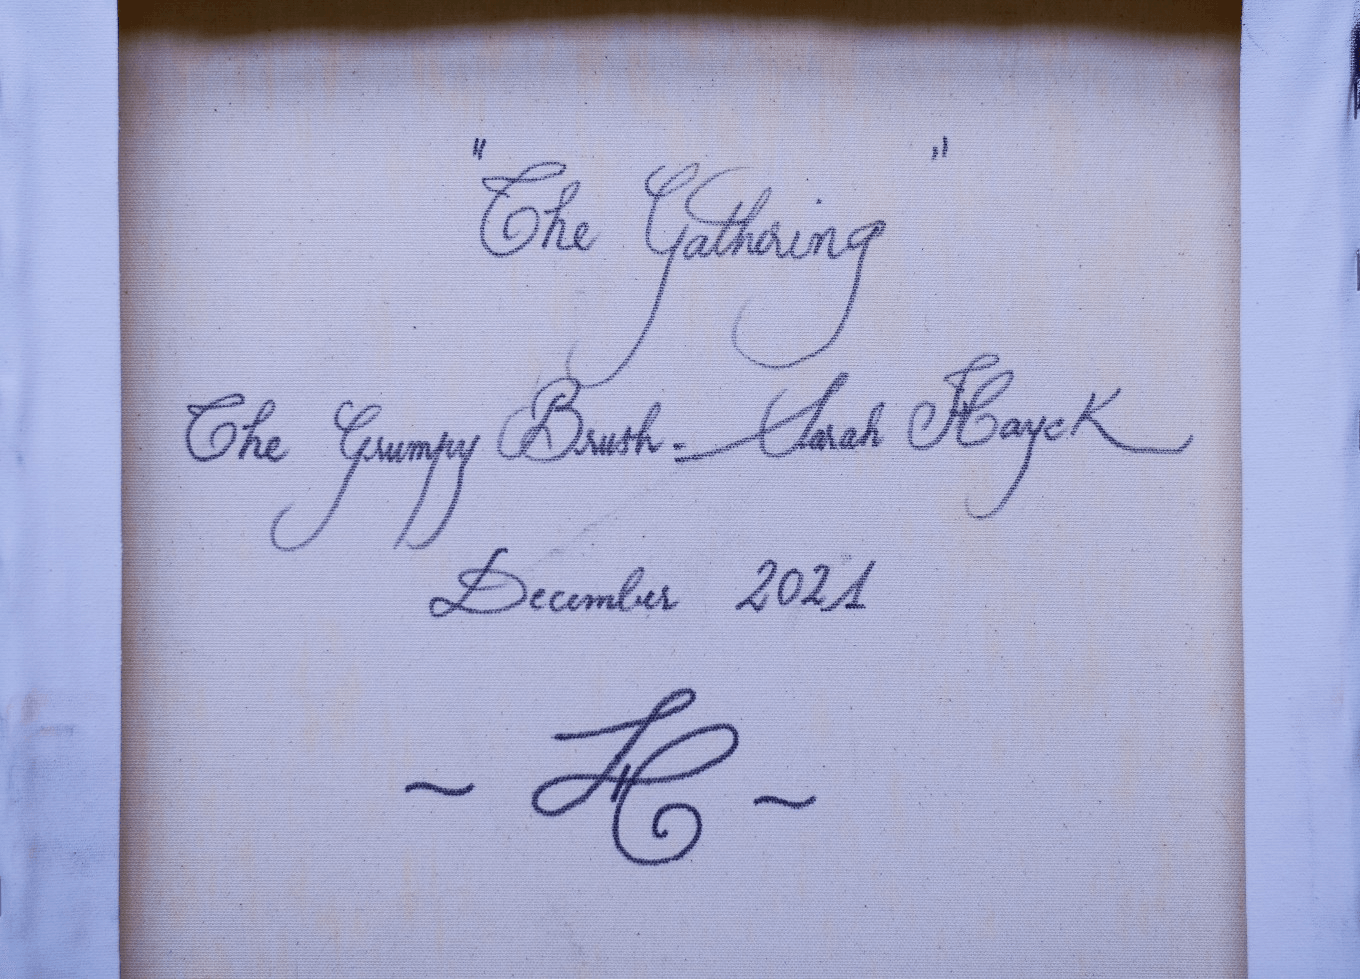 "The Gathering"
The Grumpy Brush - Sarah Hayek
December 2021
~ H ~